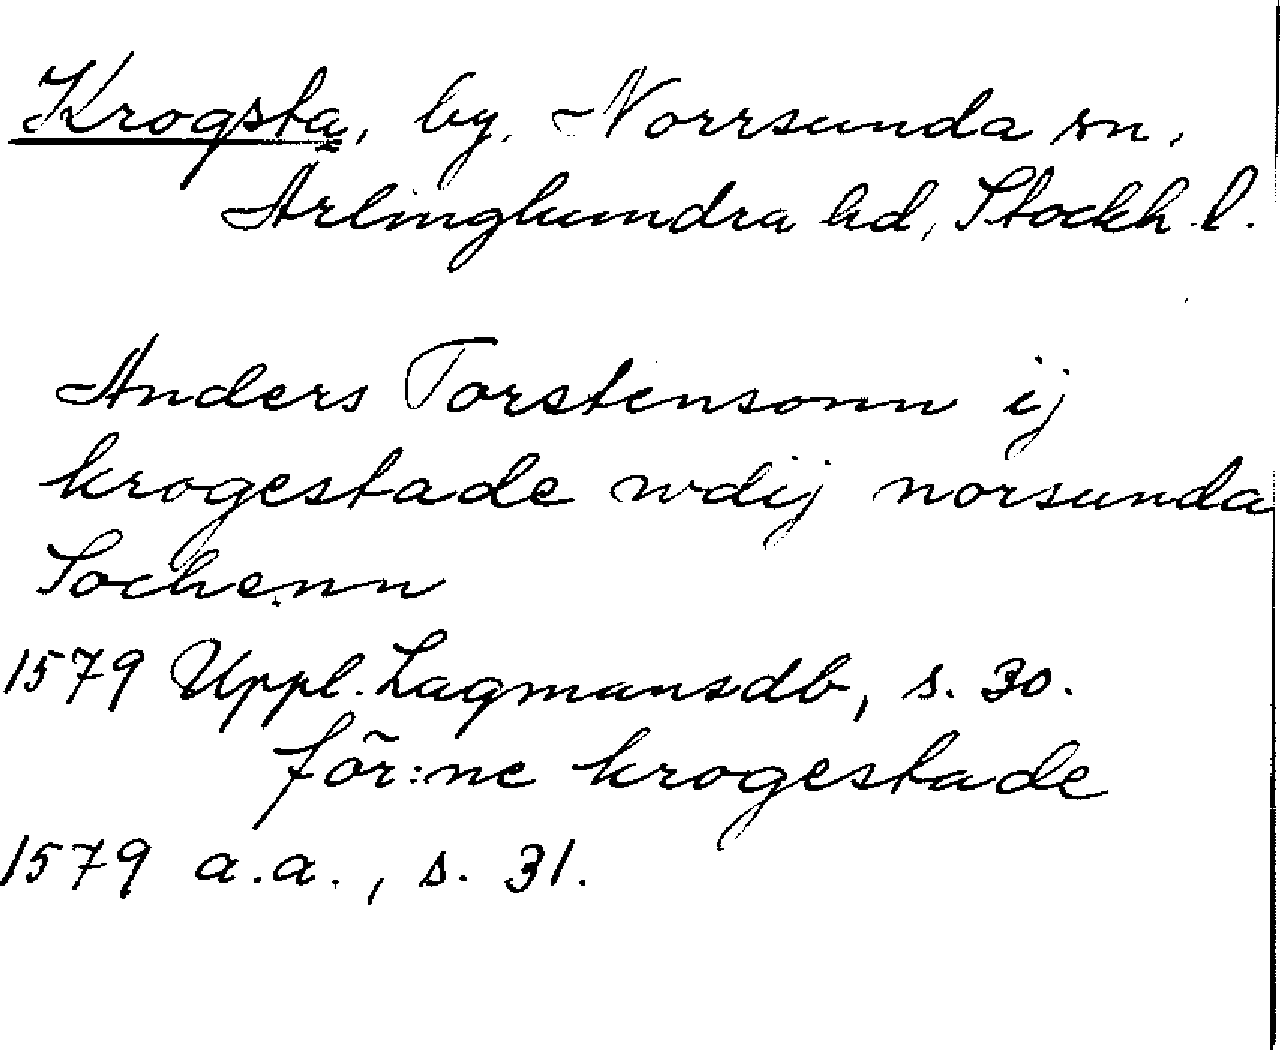 Krogsta, by. Norrsunda sn,
Ärlinghundra hd, Stockh. l.
Anders Torstensonn ij
krogestade wdij norsunda
Sochenn
1579 Uppl. Lagmansdb, s. 30.
för:ne krogestade
1579 a.a., s. 31.